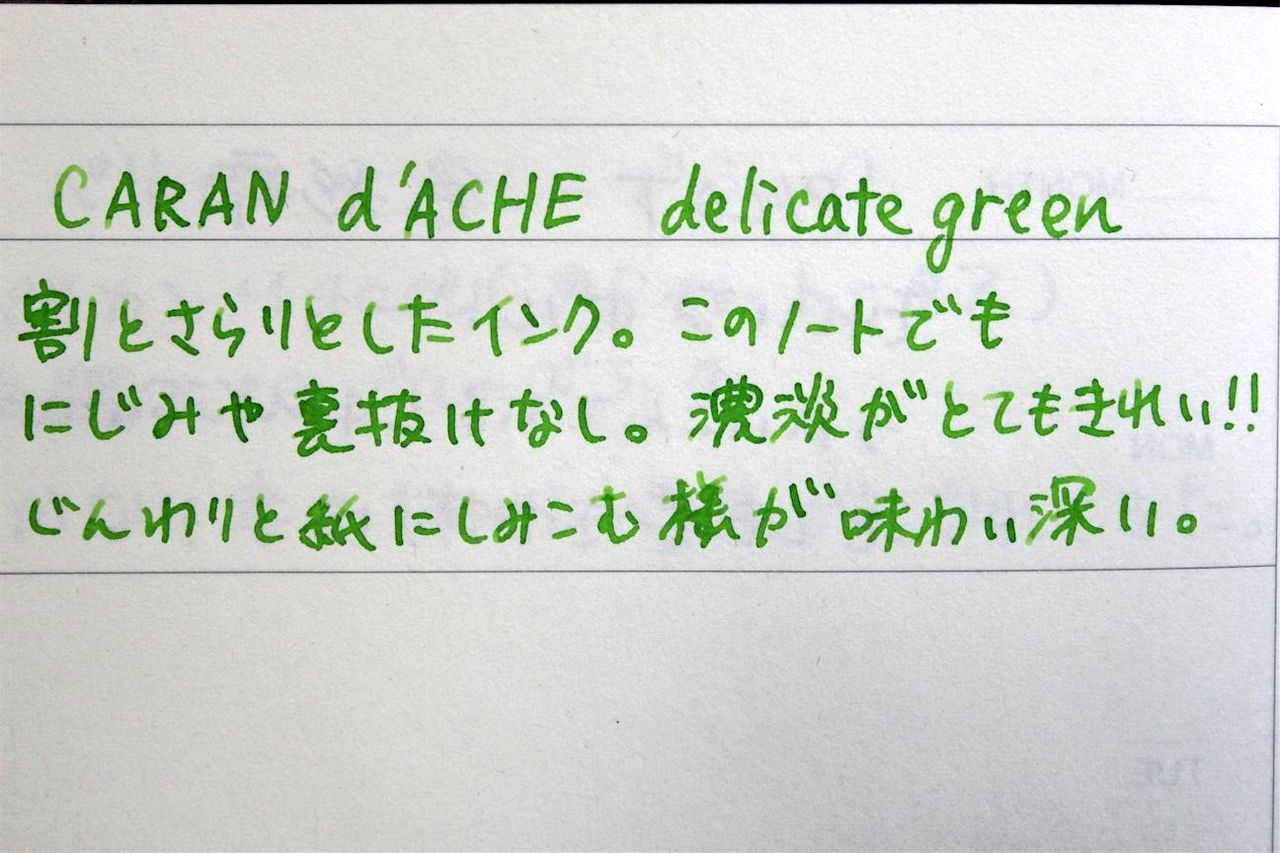 CARAN d'ACHE delicate green
割とさらりとしたインク。このノートでも
にじみや裏抜けなし。濃淡がとてもきれい!!
じんわりと紙にしみこむ様が味わい深い。
MON
TUE